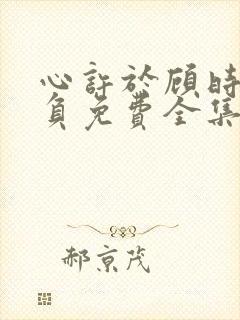 心許於顧時
負免費全集
郝京茂